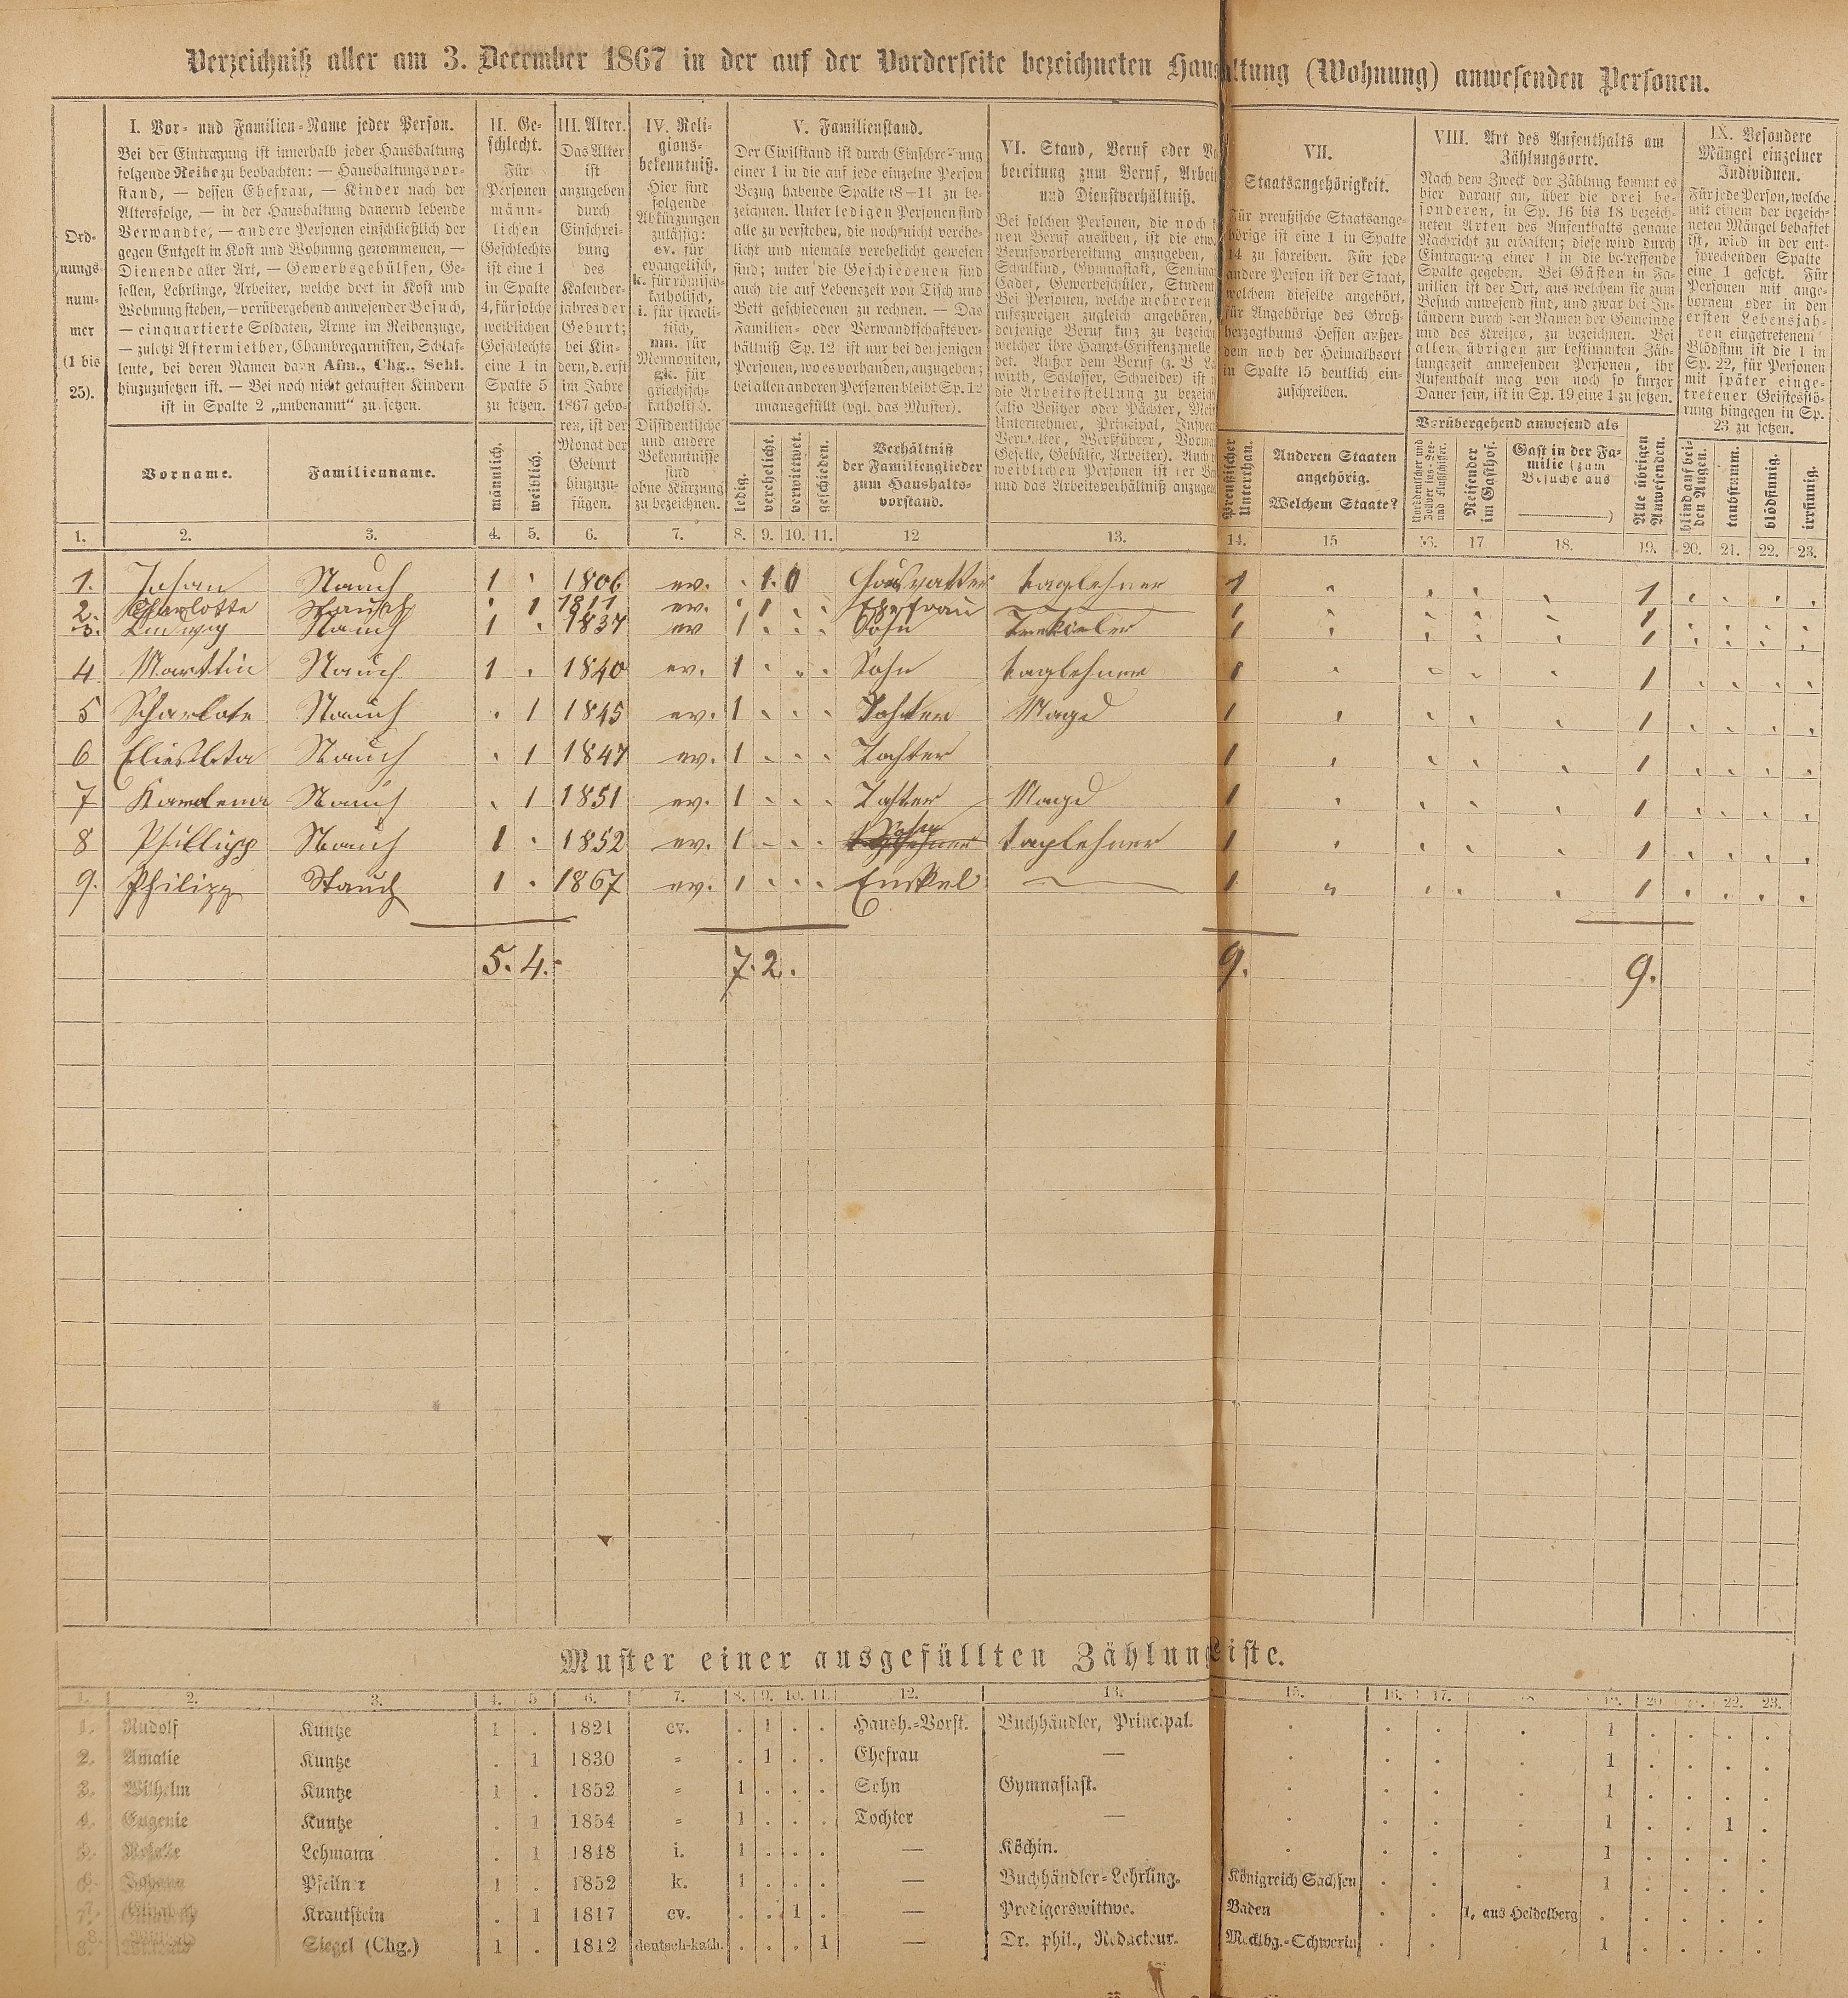 Verzeichniß aller am 3. December 1867 in der auf der Vorderseite bezeichneten Haus ltung (Wohnung) anwesenden Personen.
Ord-
nungs-
num-
mer
(1 bis
25).
I. Vor- und Familien-Name jeder Person.
Bei der Eintragung ist innerhalb jeder Haushaltung
folgende Reihe zu beobachten: — Haushaltungsvor-
stand, — dessen Ehefrau, — Kinder nach der
Altersfolge, — in der Haushaltung dauernd lebende
Verwandte, — andere Personen einschließlich der
gegen Entgelt in Kost und Wohnung genommenen, —
Dienende aller Art, — Gewerbsgehülfen, Ge-
sellen, Lehrlinge, Arbeiter, welche dort in Kost und
Wohnung stehen, — vorübergehend anwesender Besuch,
— einquartierte Soldaten, Arme im Reihenzuge,
— zuletzt Aftermiether, Chambregarnisten, Schlaf-
leute, bei deren Namen dann Afm., Chg., Schl.
hinzuzusetzen ist. — Bei noch nicht getauften Kindern
ist in Spalte 2 „unbenannt“ zu setzen.
Vorname.
Familienname.
II. Ge-
schlecht.
Für
Personen
männ-
lichen
Geschlechts
ist eine 1
in Spalte
4, für solche
weiblichen
Geschlechts
eine 1 in
Spalte 5
zu setzen.
männlich.
weiblich.
III. Alter.
Das Alter
ist
anzugeben
durch
Einschrei-
bung
des
Kalender-
jahres der
Geburt;
bei Kin-
dern, d. erst
im Jahre
1867 gebo-
ren, ist der
Monat der
Geburt
hinzuzu-
fügen.
IV. Reli-
gions-
bekenntniß.
Hier sind
folgende
Abkürzungen
zulässig:
ev. für
evangelisch,
k. für römisch-
katholisch,
i. für israeli-
tisch,
mn. für
Mennoniten,
gk. für
griechisch-
katholisch.
Dissidentische
und andere
Bekenntnisse
sind
ohne Kürzung
zu bezeichnen.
V. Familienstand.
Der Civilstand ist durch Einschreibung
einer 1 in die auf jede einzelne Person
Bezug habende Spalte (8—11 zu be-
zeichnen. Unter ledigen Personen sind
alle zu verstehen, die noch nicht verehe-
licht und niemals verehelicht gewesen
sind; unter die Geschiedenen sind
auch die auf Lebenszeit von Tisch und
Bett geschiedenen zu rechnen. — Das
Familien- oder Verwandtschaftsver-
hältniß Sp. 12 ist nur bei denjenigen
Personen, wo es vorhanden, anzugeben;
bei allen anderen Personen bleibt Sp. 12
unausgefüllt (vgl. das Muster).
ledig.
verehelicht.
verwittwet.
geschieden.
Verhältniß
der Familienglieder
zum Haushalts-
vorstand.
VI. Stand, Beruf oder
bereitung zum Beruf, Arbei
und Dienstverhältniß.
Bei solchen Personen, die noch
nen Beruf ausüben, ist die etw
Berufsvorbereitung anzugeben,
Schulkind, Gymnasiast, Semina
Cadet, Gewerbeschüler, Student
Bei Personen, welche mehreren
rufszweigen zugleich angehören,
derjenige Beruf kurz zu bezeich
welcher ihre Haupt-Existenzquelle
det. Außer dem Beruf (z. B.
wirth, Schlosser, Schneider) ist
die Arbeitsstellung zu bezeich
(also Besitzer oder Pächter, Mei
Unternehmer, Principal, Inspec
Verwalter, Werkführer, Vorma
Geselle, Gehülfe, Arbeiter). Auch
weiblichen Personen ist der Be
und das Arbeitsverhältniß anzuge
VII.
Staatsangehörigkeit.
Für preußische Staatsange-
hörige ist eine 1 in Spalte
14 zu schreiben. Für jede
andere Person ist der Staat,
welchem dieselbe angehört,
für Angehörige des Groß-
herzogthums Hessen außer-
dem noch der Heimathsort
in Spalte 15 deutlich ein-
zuschreiben.
Preußischer
Unterthan.
Anderen Staaten
angehörig.
Welchem Staate?
VIII. Art des Aufenthalts am
Zählungsorte.
Nach dem Zweck der Zählung kommt es
hier darauf an, über die drei be-
sonderen, in Sp. 16 bis 18 bezeich-
neten Arten des Aufenthalts genaue
Nachricht zu erhalten; diese wird durch
Eintragung einer 1 in die betreffende
Spalte gegeben. Bei Gästen in Fa-
milien ist der Ort, aus welchem sie zum
Besuch anwesend sind, und zwar bei In-
ländern durch den Namen der Gemeinde
und des Kreises, zu bezeichnen. Bei
allen übrigen zur bestimmten Zäh-
lungszeit anwesenden Personen, ihr
Aufenthalt mag von noch so kurzer
Dauer sein, ist in Sp. 19 eine 1 zu setzen.
Vorübergehend anwesend als
Norddeutscher und
Zollvereins-See-
und Flußschiffer.
Reisender
im Gasthof.
Gast in der Fa-
milie (zum
Besuche aus
)
Alle übrigen
Anwesenden.
IX. Besondere
Mängel einzelner
Individuen.
Für jede Person, welche
mit einem der bezeich-
neten Mängel behaftet
ist, wird in der ent-
sprechenden Spalte
eine 1 gesetzt. Für
Personen mit ange-
bornem oder in den
ersten Lebensjah-
ren eingetretenem
Blödsinn ist die 1 in
Sp. 22, für Personen
mit später einge-
tretener Geistesstö-
rung hingegen in Sp.
23 zu setzen.
blind auf bei-
den Augen.
taubstumm.
blödsinnig.
irrsinnig.
1. 2. 3. 4. 5. 6. 7. 8. 9. 10. 11. 12 13. 14. 15 16. 17 18. 19. 20. 21. 22. 23.
1. Johan Stauch 1 1806 ev. 1. Hausvatter taglehner 1 1
2. Charlotte Stauch 1 1811 ev. 1 Ehefrau 1 1
3. Ludwig Stauch 1 1837 ev 1 Sohn 1 1
4 Marttin Stauch 1 1840 ev. 1 Sohn taglehner 1 1
5 Scharlote Stauch 1 1845 ev. 1 Tochter Magd 1 1
6 Eliesbeta Stauch 1 1847 ev. 1 Tochter 1 1
7 Karolena Stauch 1 1851 ev. 1 Tochter Magd 1 1
8 Phillipp Stauch 1 1852 ev. 1 Sohn taglehner 1 1
9. Philipp Stauch 1 1867 ev. 1 Enkel — 1 1
5. 4. 7. 2. 9. 9.
Muster einer ausgefüllten Zählungsliste.
1. 2. 3. 4. 5 6. 7. 8. 9. 10. 11. 12. 13. 15. 16. 17. 18 19. 20 21. 22. 23.
1. Rudolf Kuntze 1 . 1821 ev. . 1 . . Haush.-Vorst. Buchhändler, Principal. . . . . 1 . . . .
2. Amalie Kuntze . 1 1830 = . 1 . . Ehefrau — . . . . 1 . . . .
3. Wilhelm Kuntze 1 . 1852 = 1 . . . Sohn Gymnasiast. . . . . 1 . . . .
4. Eugenie Kuntze . 1 1854 = 1 . . . Tochter — . . . . 1 . . 1 .
5. Rosalie Lehmann . 1 1848 i. 1 . . . — Köchin. . . . . 1 . . . .
6. Johann Pfeilner 1 . 1852 k. 1 . . . — Buchhändler-Lehrling. Königreich Sachsen . . . 1 . . . .
7. Elisabeth Krautstein . 1 1817 ev. . . 1 . — Predigerswittwe. Baden . . 1, aus Heidelberg . . . . .
8. Siegel (Chg.) 1 . 1812 deutsch-kath. . . . 1 — Dr. phil., Redacteur. Mecklbg.-Schwerin . . . 1 . . . .